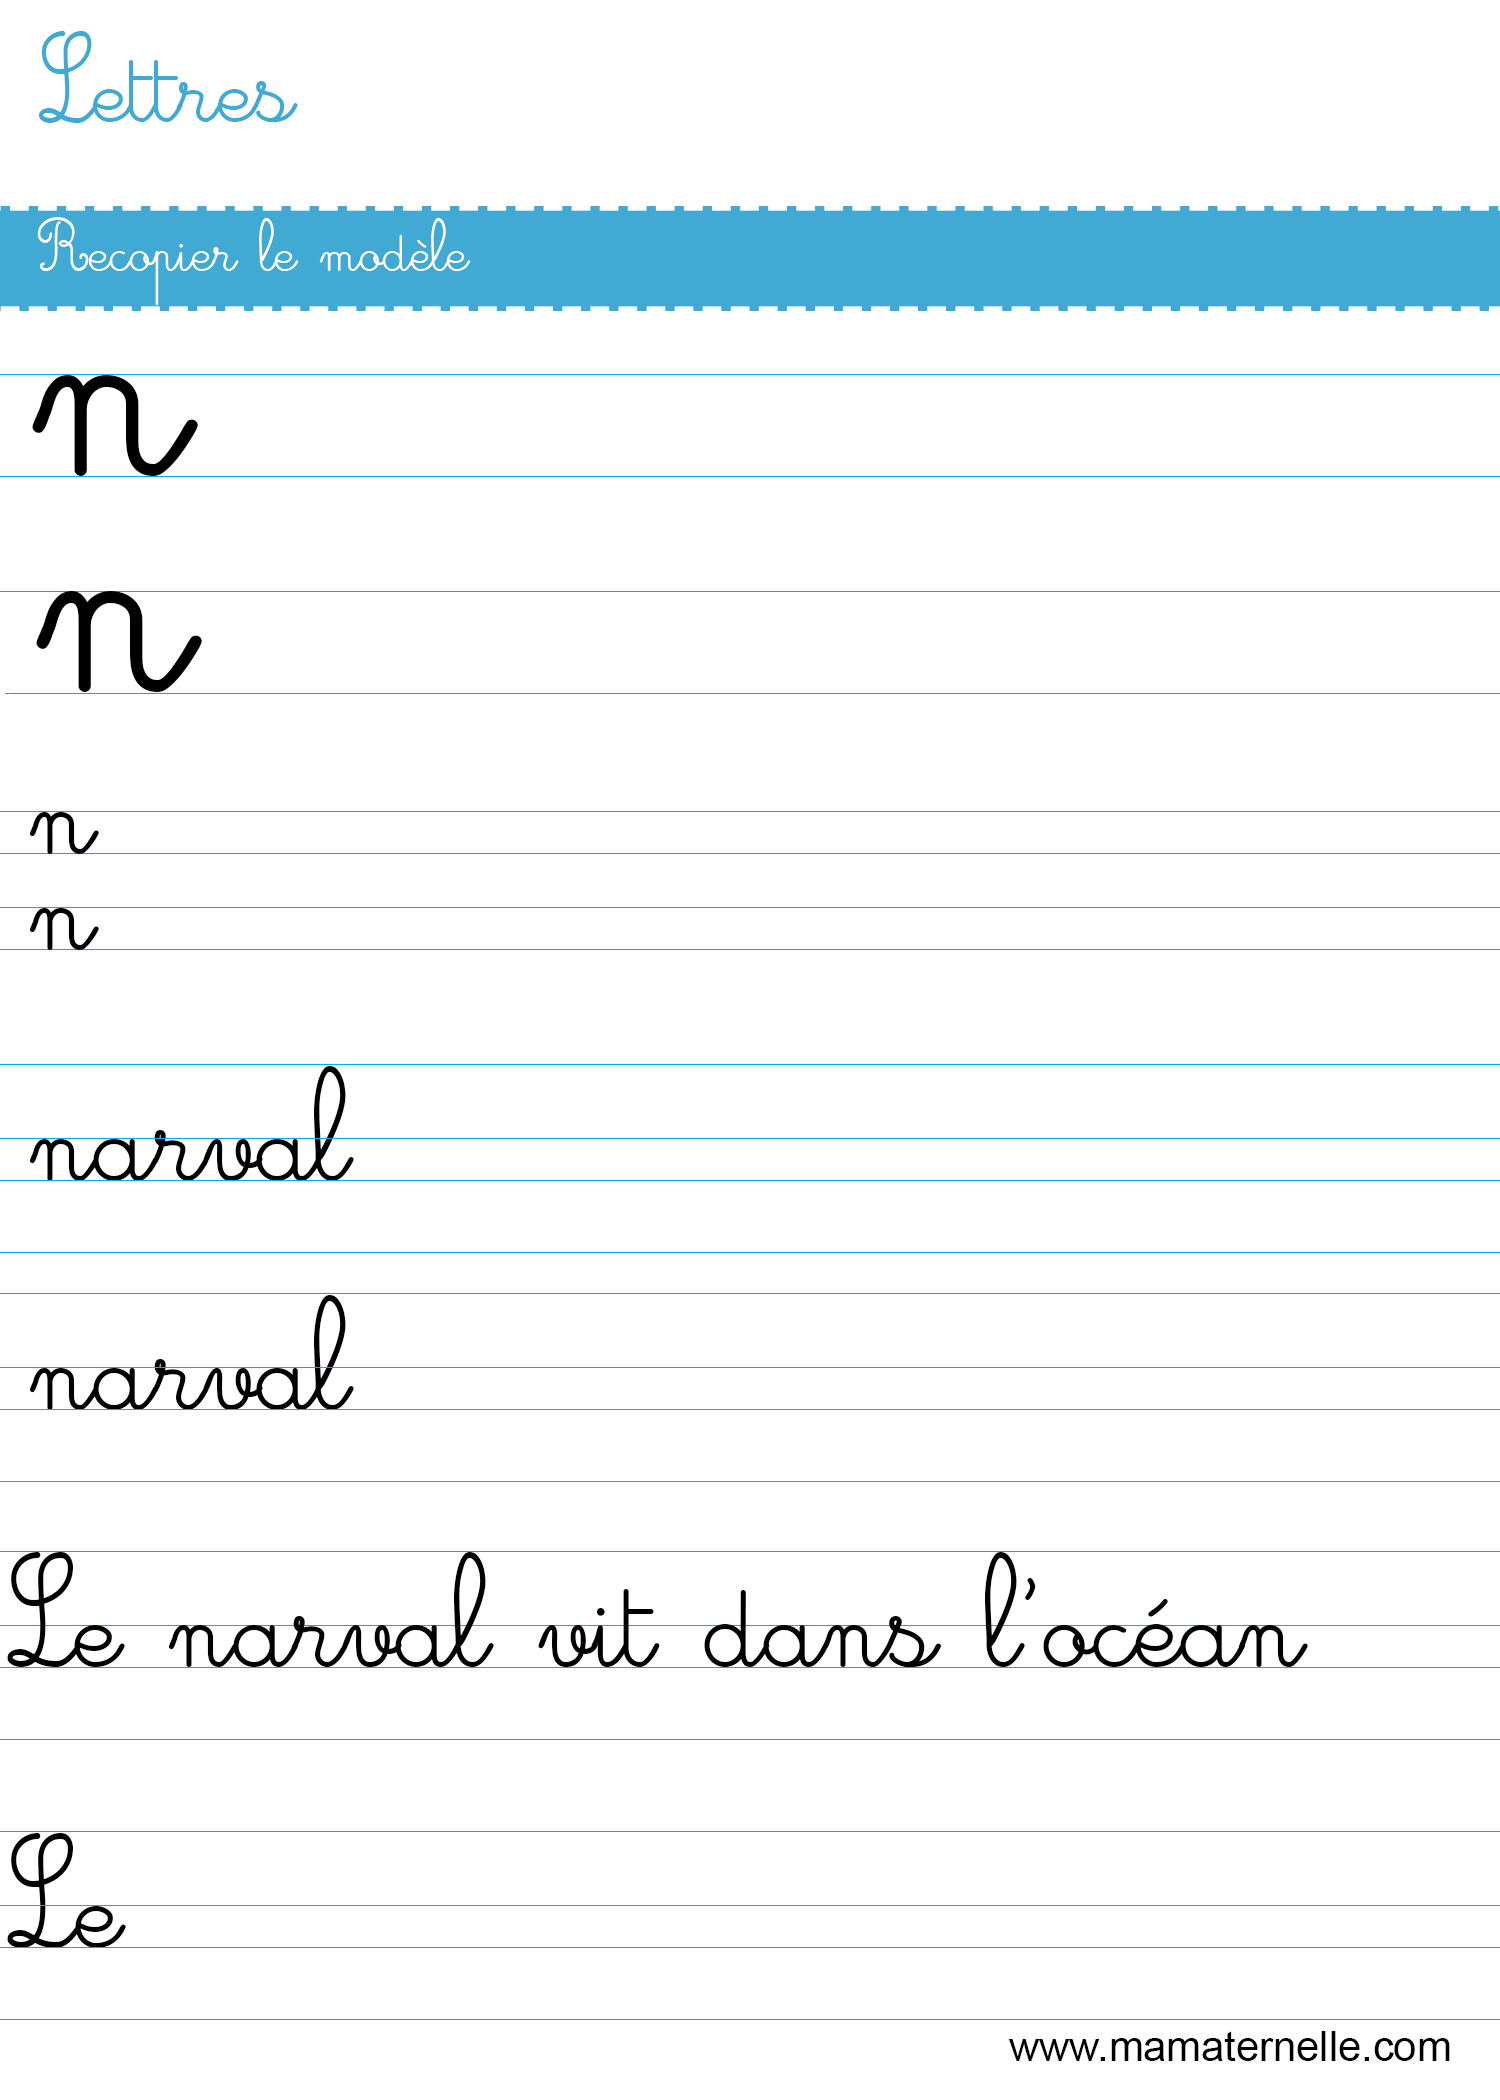 Lettres
Recopier le modèle
n
n
n
n
narval
narval
Le narval vit dans l'océan
Le
www.mamaternelle.com